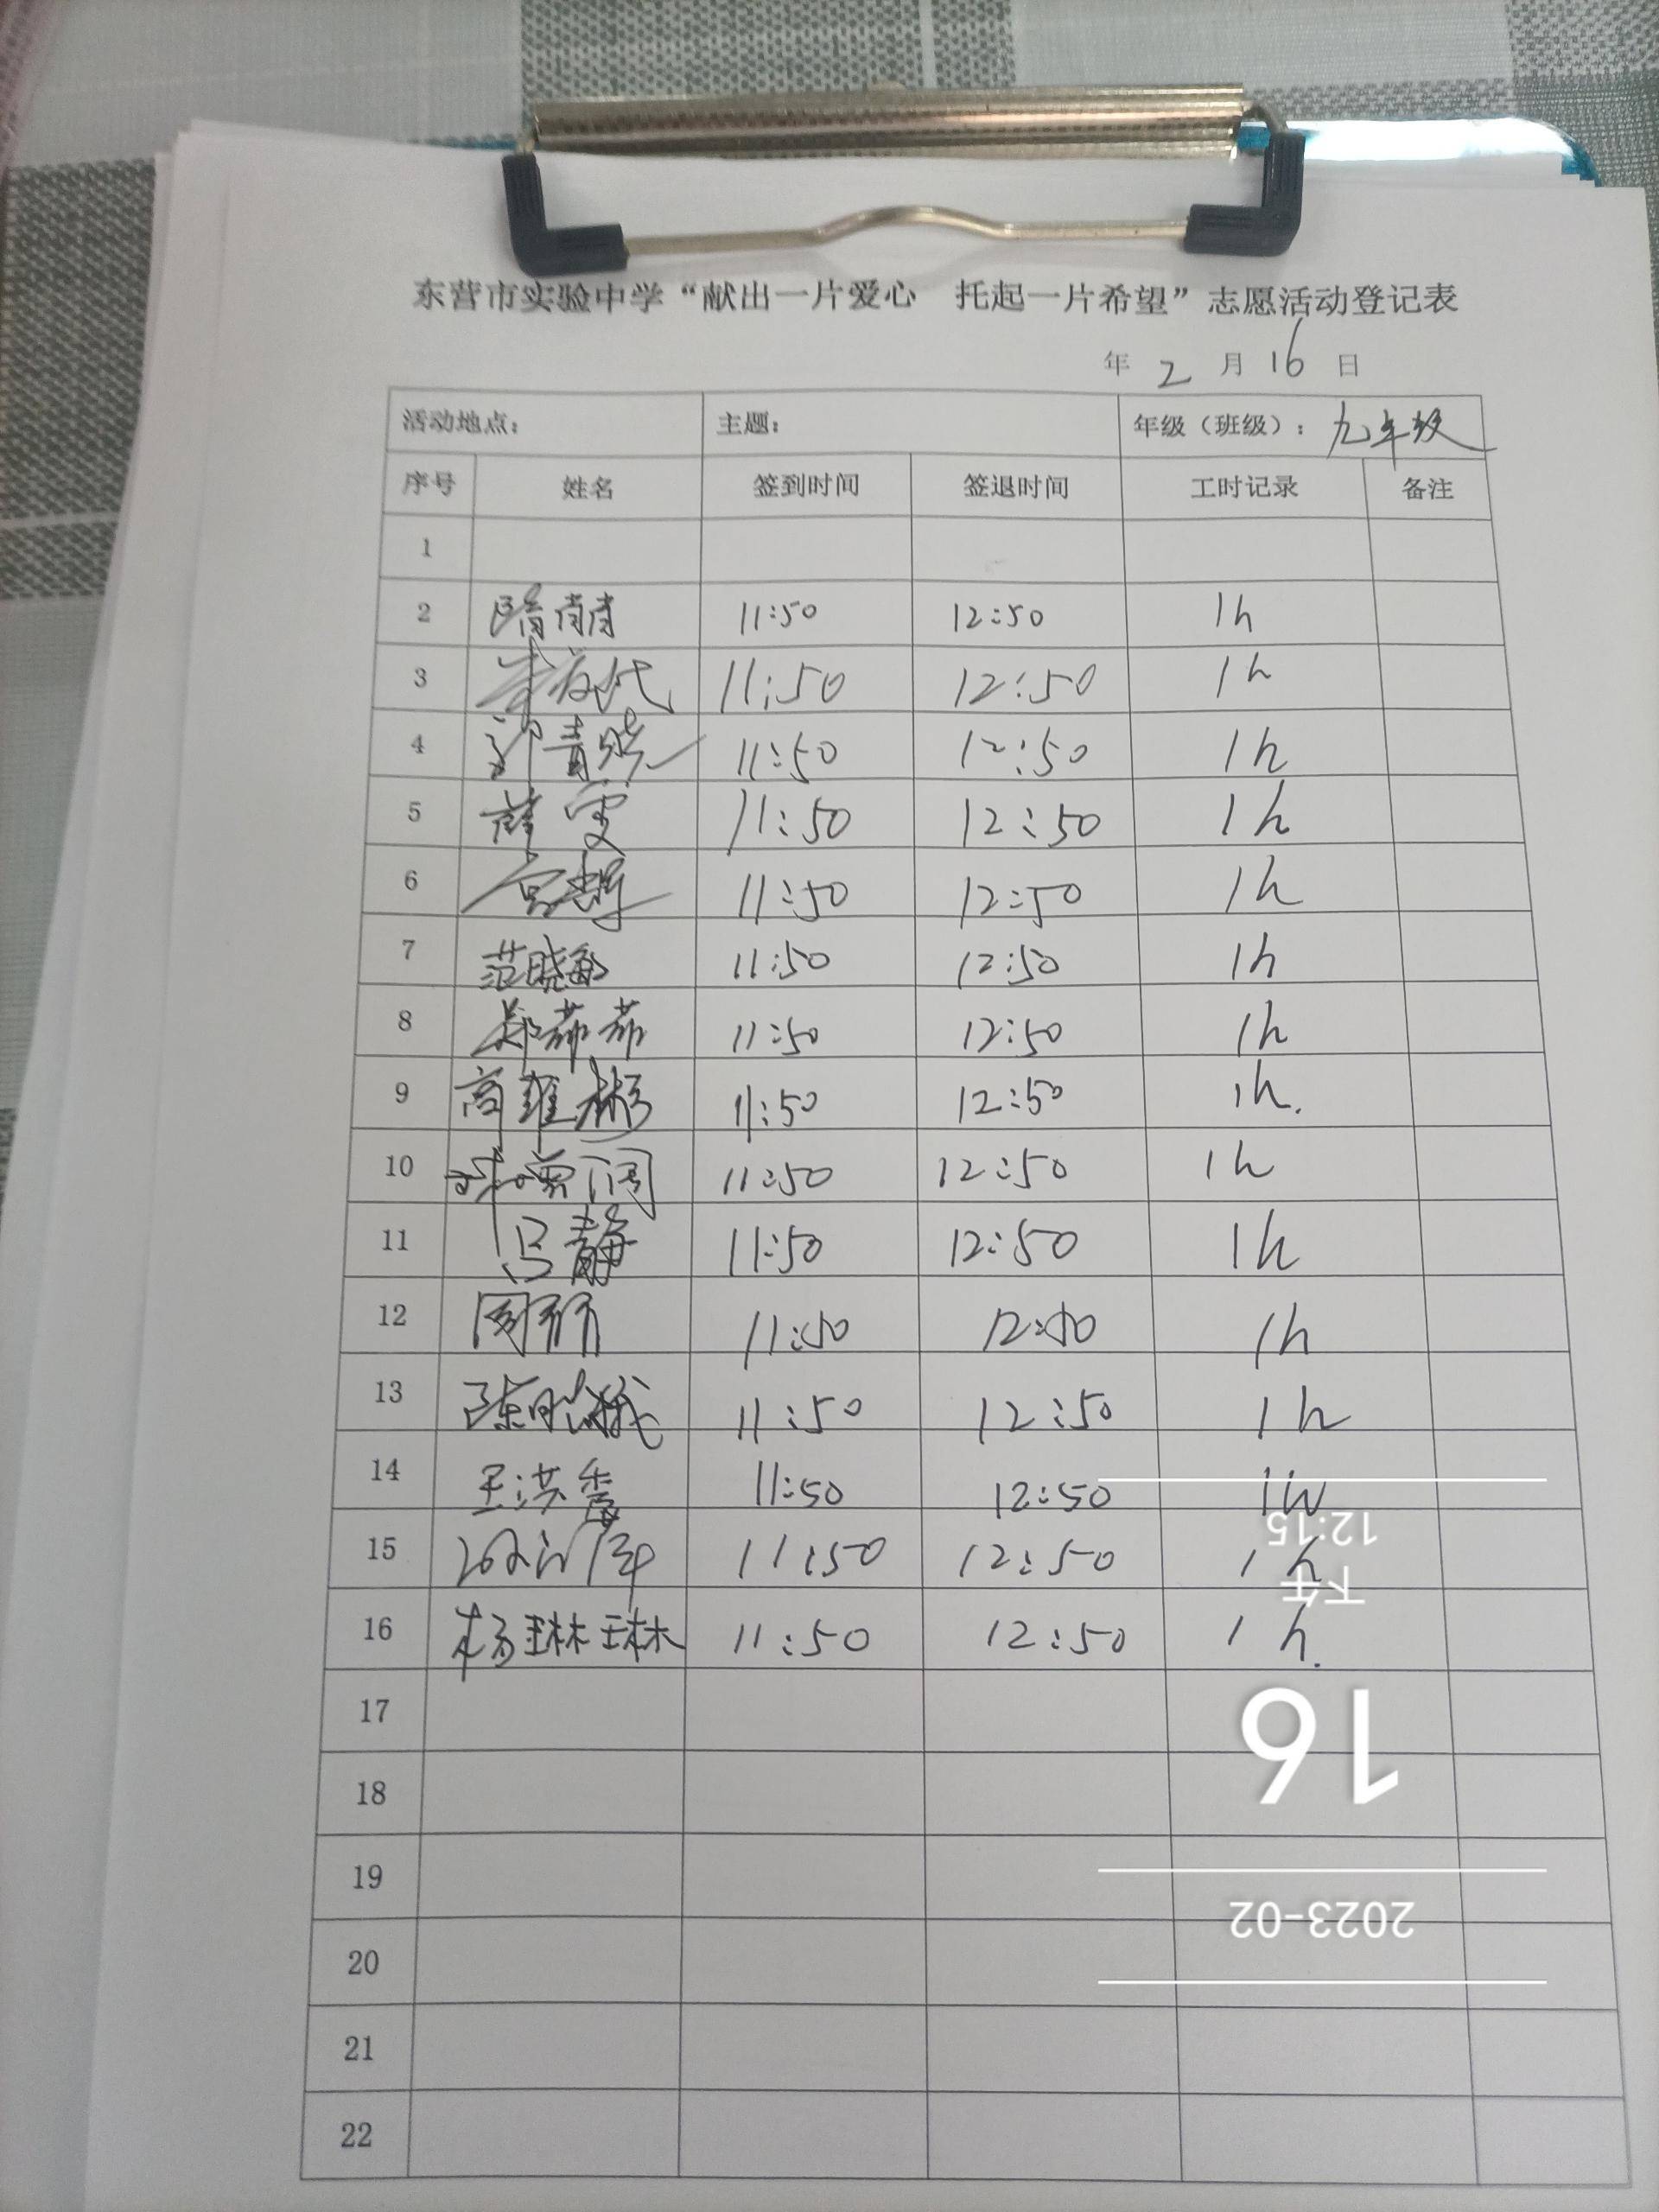 东营市实验中学“献出一片爱心 托起一片希望”志愿活动登记表
年 2 月 16 日
活动地点： 主题： 年级（班级）：九年级
序号 姓名 签到时间 签退时间 工时记录 备注
1
2 11:50 12:50 1h
3 11:50 12:50 1h
4 11:50 12:50 1h
5 薛雯 11:50 12:50 1h
6 11:50 12:50 1h
7 范晓敏 11:50 12:50 1h
8 郑茹茹 11:50 12:50 1h
9 商维彬 11:50 12:50 1h.
10 11:50 12:50 1h
11 吕静 11:50 12:50 1h
12 11:50 12:50 1h
13 11:50 12:50 1h
14 王洪香 11:50 12:50 1h
15 11:50 12:50 1h
16 杨琳琳 11:50 12:50 1h.
17
18
19
20
21
22
2023-02
16
下午
12:15